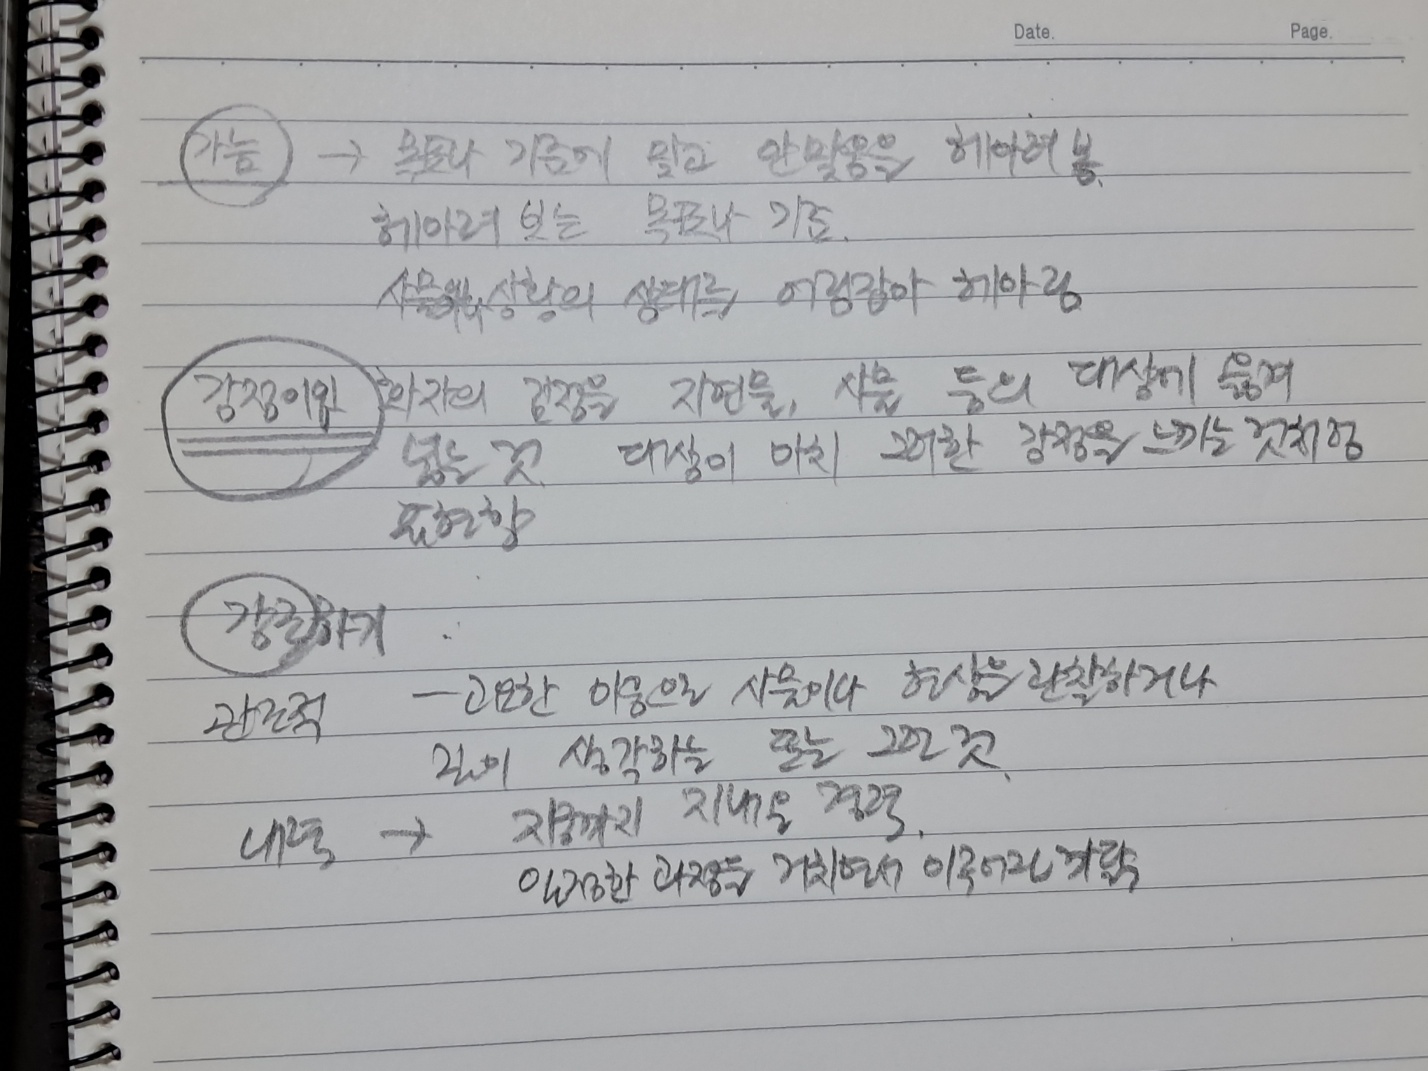 Date. Page.
가늠 → 목표나 기준에 맞고 안맞음을 헤아려 봄.
헤아려 보는 목표나 기준.
사물이나 상황의 상태를 어림잡아 헤아림
감정이입 화자의 감정을 자연물, 사물 등의 대상에 옮겨
넣는 것 대상이 마치 그러한 감정을 느끼는 것처럼
표현함
하기
관조적 - 고요한 마음으로 사물이나 현상을 관찰하거나
깊이 생각하는 또는 그런 것.
내력 → 지금까지 지내온 경력.
일정한 과정을 거치면서 이루어진 까닭